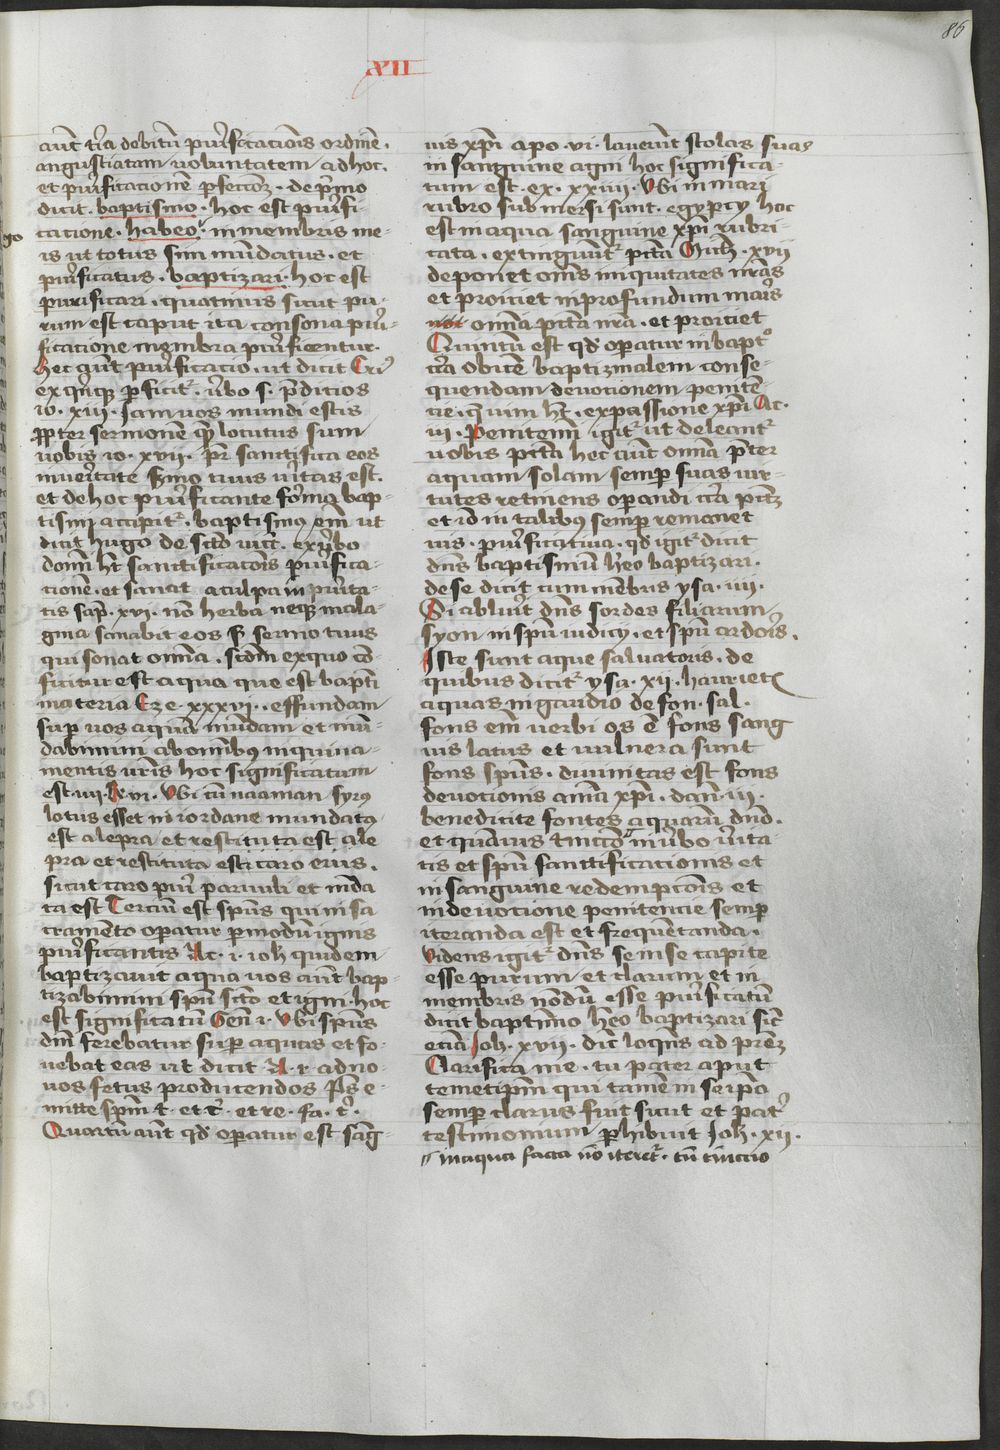 86
XVII
aūt t̄ia debitū purificatiōis ordinē.
angustiatam voluntatem ad hoc.
et purificationē ꝑfectōꝫ. de p̄mo
dicit. baptismo. hoc est purifi-
catione. habeo. in membris me-
go
is ut totus sim mūdatus. et
purificatus. baptizari. hoc est
purificari. quatinus sicut pu-
rum est caput ita consona puri-
ficatione membra purificentur.
hec aūt purificacio. ut dicit
ex ꝑficit᷑. v̄bo s. p̄dicios
io. xiii. Jam vos mundi estis
ꝓpter sermonē quē locutus sum
vobis io. xvii. pr̄ sanctifica eos
in veritate s̄mo tuus v̄itas est.
et de hoc purificante forma bap-
tismi accipit᷑. baptismus em̄ ut
dicit hugo de sc̄to vict̄. ex v̄bo
domī hꝫ sanctificatiōis purifica-
cionē. et sanat a culpa in p̄uita-
tis sap̄. xvi. nō herba neqꝫ mala-
gma sanabit eos sꝫ sermo tuus
qui sanat omnia. scdm ex quo cō-
ficitur est aqua que est bapti
materia Eze. xxxvi. effundam
suꝑ vos aquā mūdam et mū-
dabimini ab omībus inquina-
mentis vr̄is hoc significatum
est. iiii. Re. v. Vbi cū naaman syrus
lotus esset in iordane mundata
est a lepra et restituta est a le
pra et restituta est caro eius.
sicut caro pueri parvuli et mūda
ta est Terciū est spūs qui in sa
cramēto operatur ꝑ modū ignis
purificantis Ac. i. ioh quidem
baptizavit aqua vos aūt bap-
tizabimini spū sc̄to et igni. hoc
est significatū Gen̄ i. Vbi spūs
dm̄ ferebatur suꝑ aquas et fo-
vebat eas ut dicit A. r ad no-
vos fetus producendos Ps̄ e-
mitte spm̄ t. et c̄. et re. fa. t̄.
Quartū aūt qđ operatur est sāg-
uis xp̄i apo. vi. laverūt stolas suas
in sanguine agni hoc significa-
tum est. ex. xxiiii. Vbi in mari
rubro submersi sunt. egypcy hoc
est in aqua sanguine xp̄i rubri-
cata. extinguūt᷑ pctā Mich. xvii
deponet om̄s iniquitates nr̄as
et proiciet in profundum maris
omīa pctā nr̄a. et proiciet
Quintū est qđ operatur in bapt°
c̄ra obicē baptizmalem conse-
quendam devotionem penitē-
cie. q̄ vim hꝫ. ex passione xp̄i Ac.
iii. Penitemī igit᷑ ut deleant᷑
vobis pctā hec aūt omīa p̄ter
aquam solam semꝑ suas vir-
tutes retinens operandi c̄ra pctꝫ
et id in talibus semꝑ remanet
vis. purificativa. qđ igit᷑ dicit
dn̄s baptismū h̄eo baptizari.
de se dicit cum mēbris ysa. iiii.
Si abluīt dn̄s sordes filiarum
syon in spū iudicij. et spū ardoris.
Iste sunt aque salvatoris. de
quibus dicit᷑ ysa. xii. haurietꝭ
aquas in gaudio de fon. sal.
fons em̄ verbi os ē fons sang
uis latus et vulnera sunt
fons spūs. divinitas est fons
devotionis anīa xp̄i. dan̄. iii.
benedicite fontes aquarū dn̄o.
et quāvis tinctō in v̄bo v̄ita
tis et spū sanctificationis et
in sanguine redempcōis et
in devotione penitencie semꝑ
iteranda est et frequētanda.
Videns igit᷑ dn̄s se in se capite
esse purum et clarum et in
membris nōdū esse purificatū
dicit baptīmo h̄eo baptizari sic̄
ecīa Joh̄. xvii. dic̄ loqūs ad pr̄eꝫ
Clarifica me. tu pater aput
temetipm̄ qui tamē in se ip̄a
semꝑ clarus fuit sicut et pat̄
testimonium ꝑhibuit Joh̄. xii.
in aqua facta nō iteret᷑. tn̄ tinctio